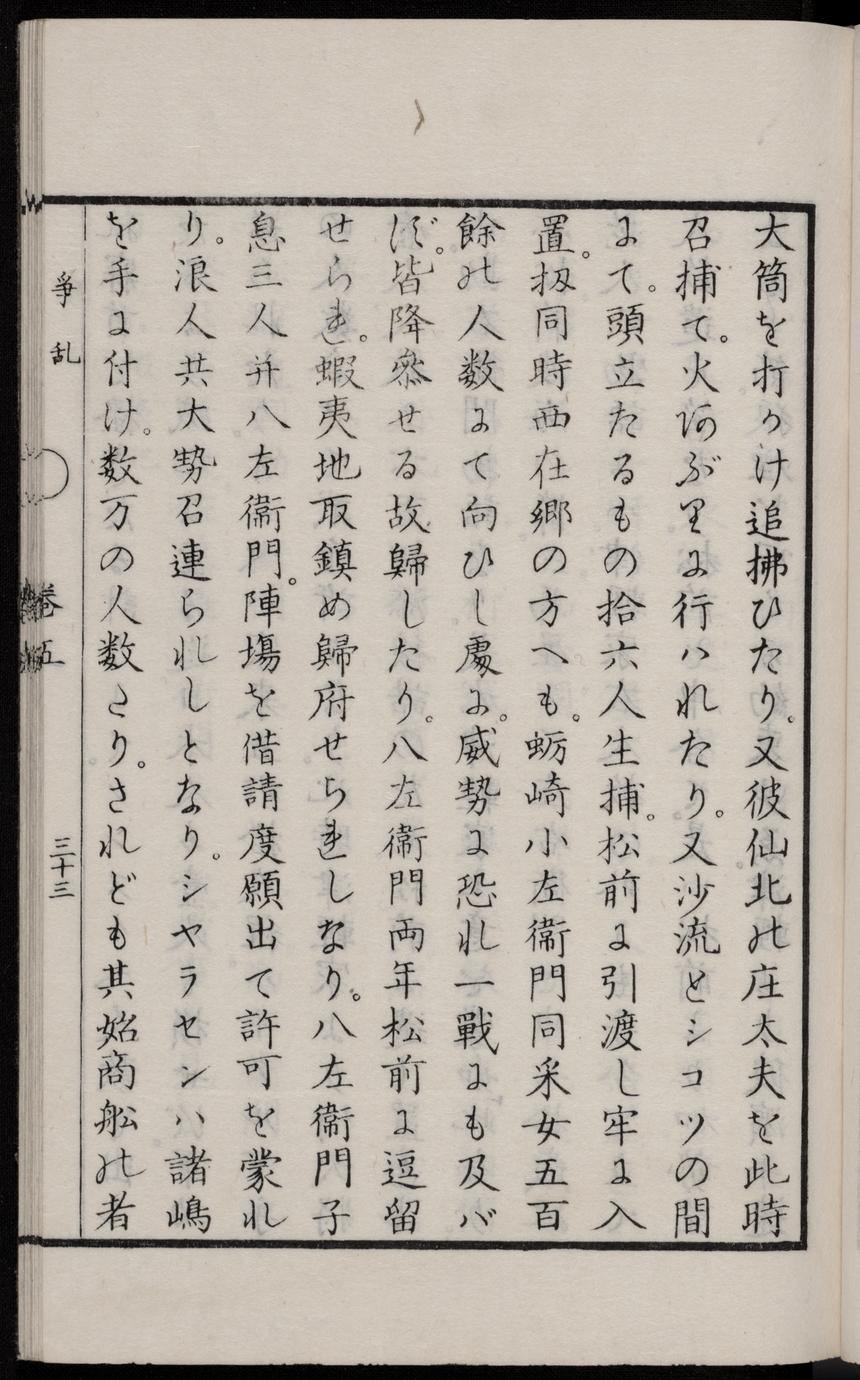 大筒を打かけ追拂ひたり。又彼仙北の庄太夫を此時
召捕て。火阿ぶりに行ハれたり。又沙流とシコツの間
にて。頭立たるもの拾六人生捕。松前に引渡し牢に入
置。扨同時西在郷の方へも。蛎崎小左衞門同采女五百
餘の人数にて向ひし處に。威勢に恐れ一戰にも及バ
ず。皆降叅せる故歸したり。八左衞門両年松前に逗留
せられ。蝦夷地取鎮め歸府せられしなり。八左衞門子
息三人并八左衞門。陣塲を借請度願出て許可を蒙れ
り。浪人共大勢召連られしとなり。シヤラセンハ諸嶋
を手に付け。数万の人数さり。されども其始商舩の者
爭乱
巻五
三十三